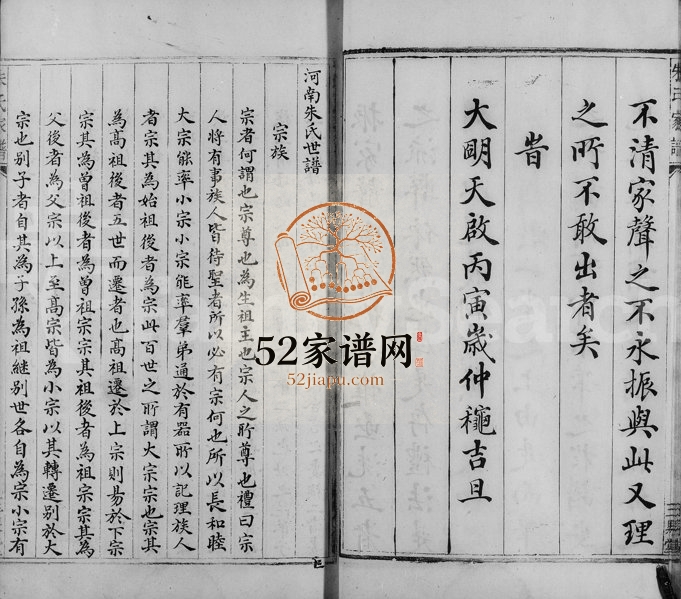 不清家聲之不永振與此又理
之所不敢出者矣
旹
大明天啟丙寅歲仲龝吉旦
河南朱氏世譜
宗族
宗者何謂也宗尊也為生祖主也宗人之所尊也禮曰宗
人將有事族人皆待聖者所以必有宗何也所以長和睦
大宗能率小宗小宗能率羣弟通於有器所以記理族人
者宗其為始祖後者為宗此百世之所謂大宗宗也宗其
為高祖後者五世而遷者也高祖遷於上宗則易於下宗
宗其為曾祖後者為曾祖宗宗其祖後者為祖宗宗其為
父後者為父宗以上至高宗皆為小宗以其轉遷別於大
宗也別子者自其為子孫為祖繼別世各自為宗小宗有
朱氏家譜
52家谱网
52jiapu.com